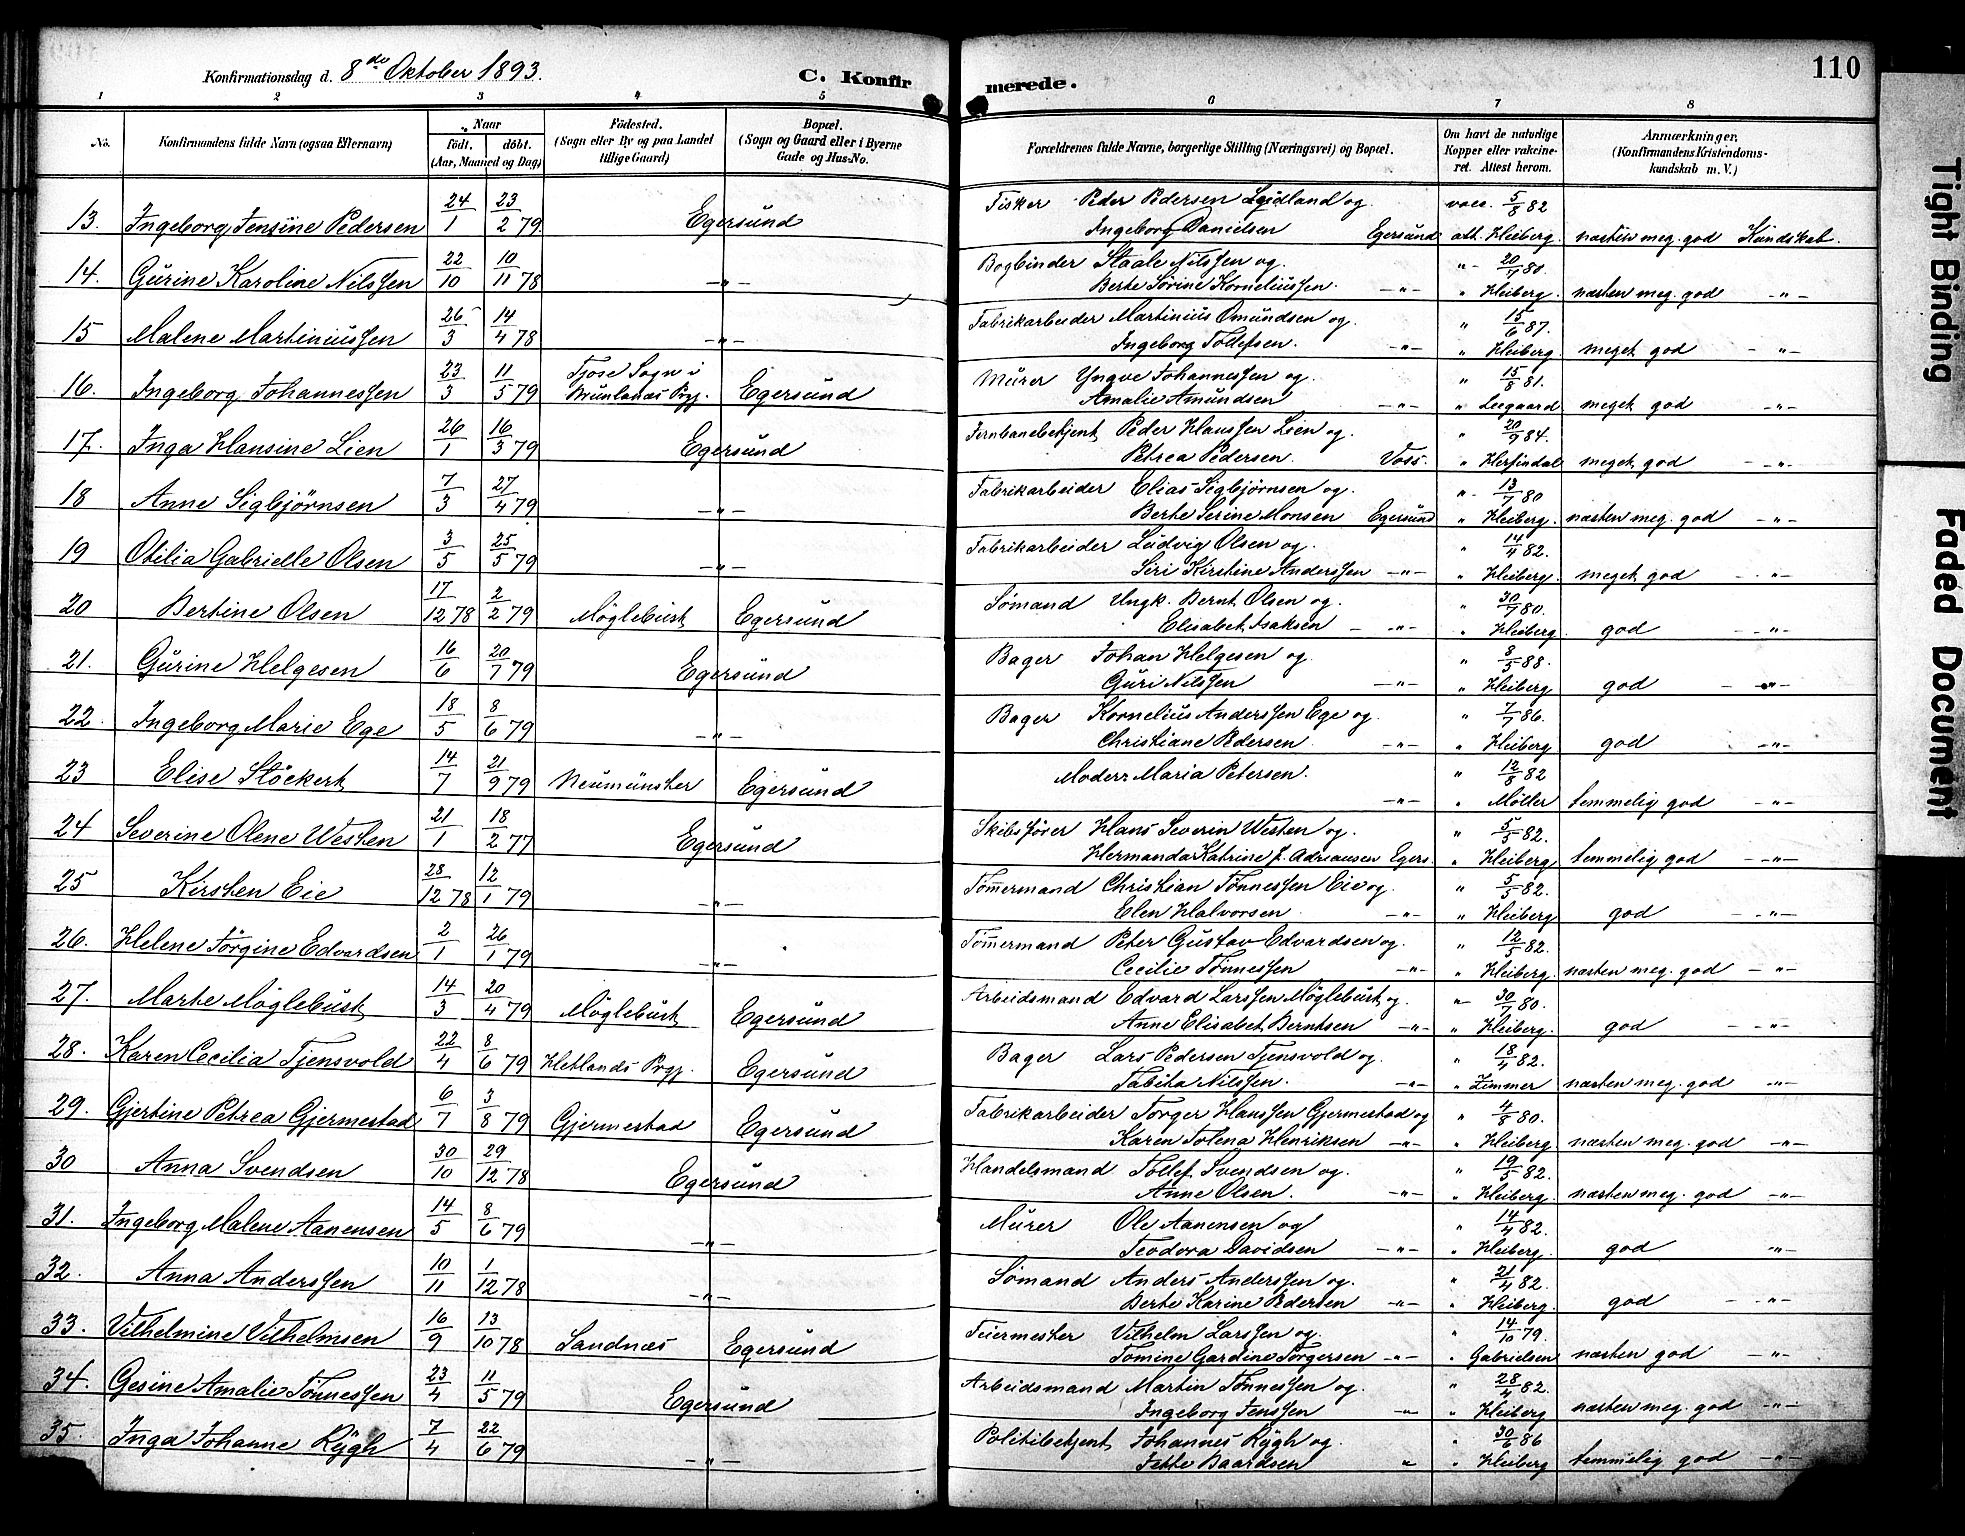 Konfirmationsdag d. 8de Oktober 1893. C. Konfirmerede. 110
1 2 3 4 5 6 7 8
No. Konfirmandens fulde Navn (ogsaa Efternavn) Naar födt. döbt. (Aar, Maaned og Dag) Födested. (Sogn eller By og paa Landet tillige Gaard) Bopæl. (Sogn og Gaard eller i Byerne Gade og Hus-No. Forældrenes fulde Navne, borgerlige Stilling (Næringsvei) og Bopæl. Om havt de naturlige Kopper eller vakcineret. Attest herom. Anmærkninger. (Konfirmandens Kristendomskundskab m. V.)
13. Ingeborg Jensine Pedersen 24/1 23/2 79 Egersund Fisker Peder Pedersen Leidland og vacc. 5/8 82
Ingeborg Danielsen Egersund att. Heiberg. næsten meg. god Kundskab.
14. Gurine Karoline Nilssen 22/10 10/11 78 -"- Bogbinder Staale Nilssen og " 20/7 80.
Berte Sørine Kornelius­sen. -"- " Heiberg. næsten meg. god -"-
15 Malene Martiniussen 26/3 14/4 78 -"- Fabrikarbeider Martinius Omundsen og " 15/6 87.
Ingeborg Tollefsen. -"- " Heiberg. meget god -"-
16. Ingeborg Johannessen 23/3 11/5 79 Tjose Sogn i Brunlanæs Prgj. Egersund Murer Yngve Johannessen og " 15/8 81.
Amalie Amundsen -"- " Leegaard meget god -"-
17. Inga Hansine Lien 26/1 16/3 79 Egersund Jernbanebetjent Peder Hanssen Lien og " 20/9 84.
Petrea Pedersen. Voss. " Herfindal meget god -"-
18 Anne Sigbjørnsen 7/3 27/4 79 -"- Fabrikarbeider Elias Sigbjørnsen og " 13/7 80
Berte Serine Monsen Egersund " Heiberg. næsten meg. god -"-
19 Otilia Gabrielle Olsen 3/5 25/5 79 -"- Fabrikarbeider Ludvig Olsen og " 14/4 82.
Siri Kirstine Anderssen -"- " Heiberg. meget god -"-
20 Bertine Olsen 17/12 78 2/2 79 Møglebust Egersund Sømand Ungk. Bernt Olsen og " 30/7 80.
Elisabet Isaksen -"- " Heiberg. god -"-
21. Gurine Helgesen 16/6 20/7 79 Egersund Bager Johan Helgesen og " 8/5 88.
Guri Nilssen -"- " Heiberg god -"-
22. Ingeborg Marie Ege 18/5 8/6 79 -"- Bager Kornelius Anderssen Ege og " 7/7 86.
Christiane Pedersen -"- " Heiberg god -"-
23 Elise Stöckert 14/7 21/9 79 Neumünster Egersund Moder: Maria Petersen. " 12/8 82
-"- " Møller temmelig god -"-
24 Severine Olene Westen 21/1 18/2 77 Egersund Skibsfører Hans Severin Westen og " 5/5 82.
Hermanda Katrine f. Adriansen Egers. " Heiberg temmelig god -"-
25 Kirsten Eie 28/12 78 12/1 79 -"- Tømmermand Christian Tønnessen Eie og " 5/5 82.
Elen Halvorsen -"- " Heiberg god -"-
26. Helene Jørgine Edvardsen 2/1 26/1 79 -"- Tømmermand Peter Gustav Edvardsen og " 12/5 82.
Cecilie Tønnessen -"- " Heiberg. næsten meg. god -"-
27. Marte Møglebust 14/3 20/4 79 Møglebust Egersund Arbeidsmand Edvard Larssen Møglebust og " 30/7 80.
Anne Elisabet Berntsen -"- " Heiberg. god -"-
28. Karen Cecilia Tjensvold 22/4 8/6 79 Hetlands Prgj. Egersund Bager Lars Pedersen Tjensvold og " 18/4 82.
Tabita Nilssen. -"- " Zimmer næsten meg. god -"-
29. Gjertine Petrea Gjermestad 6/7 3/8 79 Gjermestad Egersund Fabrikarbeider Torger Hanssen Gjermestad og " 4/8 80.
Karen Tolena Henriksen -"- " Heiberg næsten meg. god -"-
30 Anna Svendsen 30/10 29/12 78 Egersund Handelsmand Tollef Svendsen og " 19/5 82.
Anne Olsen. -"- " Heiberg. næsten meg. god -"-
31. Ingeborg Malene Aanensen 14/5 8/6 79 -"- Murer Ole Aanensen og " 14/4 82.
Teodora Davidsen -"- " Heiberg. god "-
32. Anna Anderssen 10/11 1/12 78 -"- Sømand Anders Anderssen og " 21/4 82.
Berte Karine Pedersen -"- " Heiberg. god -"-
33. Vilhelmine Vilhelmsen 16/9 13/10 78 Sandnæs Egersund Feiermester Vilhelm Larssen og " 14/10 79.
Tomine Gardine Torgersen -"- " Gabrielsen næsten god -"-
34. Gesine Amalie Tønnessen 23/4 11/5 79 Egersund Arbeidsmand Martin Tønnessen og " 28/4 82.
Ingeborg Jenssen " " Heiberg næsten meg. god -"-
35. Inga Johanne Rygh 7/4 22/6 79 -"- Politibetjent Johannes Rygh og " 30/6 86
Jette Baardsen " " Heiberg temmelig god -"-
Tight Binding
Faded Document